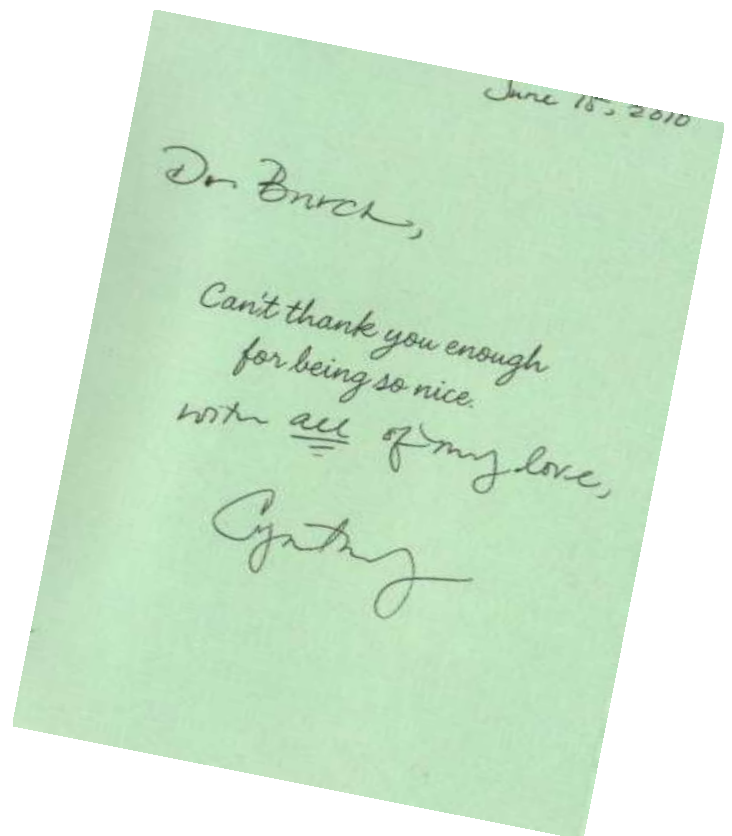 June 18, 2010
Dr. Burch,
Can't thank you enough
for being so nice.
with all of my love,